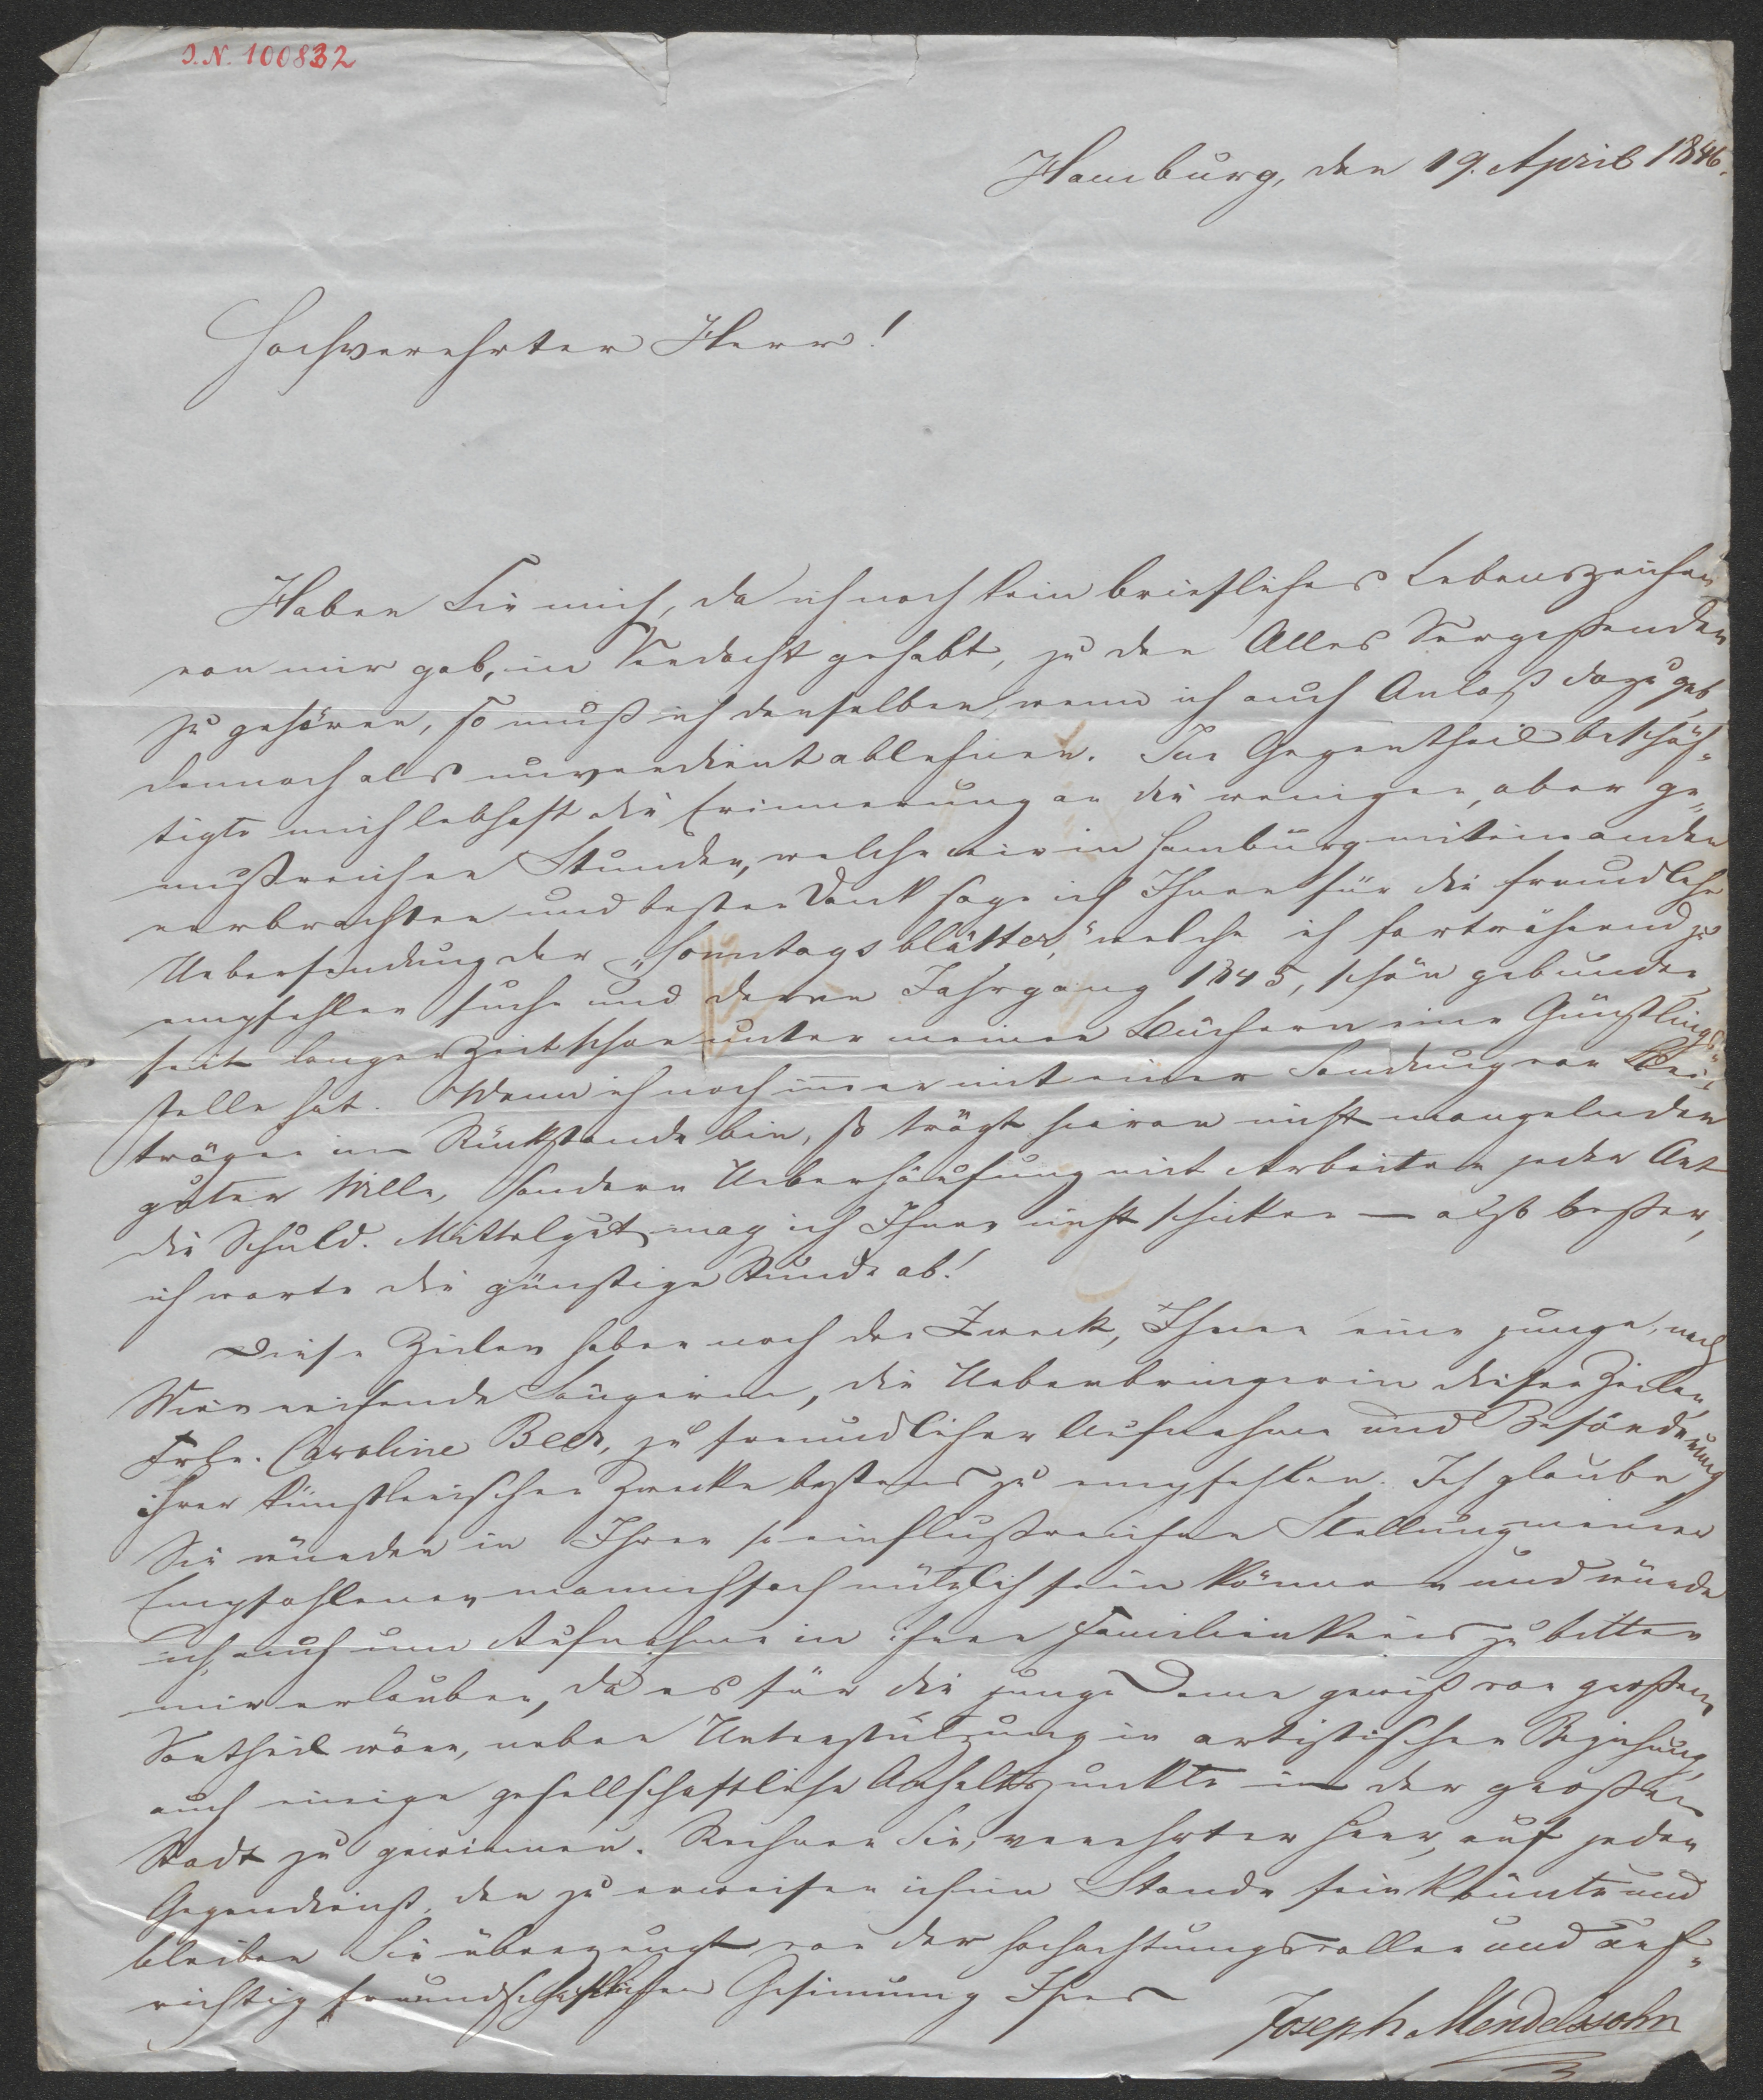 I.N. 100832
Hamburg, den 19. April 1846.
Hochverehrter Herr!
Haben Sie mich, da ich noch kein briefliches Lebenszeichen
von mir gab, in Verdacht gehabt, zu den Alles Vergessenden
zu gehören, so muß ich denselben, wenn ich auch Anlaß dazu gab,
dennoch als unverdient ablehnen. Im Gegentheil beschäf-
tigte mich lebhaft die Erinnerung an die wenigen, aber ge-
nußreichen Stunden, welche wir in Hamburg miteinander
verbrachten und besten Dank sage ich Ihnen für die freundliche
Uebersendung der „Sonntagsblätter,“ welche ich fortwährend zu
empfehlen suche und deren Jahrgang 1845, schön gebunden
seit langer Zeit schon unter meinen Büchern eine Günstlings-
stelle hat. Wenn ich noch immer mit einer Sendung von Bei-
trägen im Rückstande bin, so trägt hieran nicht mangelnder
guter Wille, sondern Ueberhäufung mit Arbeiten jeder Art
die Schuld. Mittelgut mag ich Ihnen nicht schicken — also besser,
ich warte die günstige Stunde ab!
Diese Zeilen haben noch den Zweck, Ihnen eine junge, nach
Wien reisende Sängerin, die Ueberbringerin dieser Zeilen,
Frln. Caroline Beer, zu freundlicher Aufnahme und Beförderung
ihrer künstlerischen Zwecke bestens zu empfehlen. Ich glaube,
Sie würden in Ihrer so einflußreichen Stellung meiner
Empfohlenen mannichfach nützlich sein können und würde
ich auch um Aufnahme in ihren Familienkreis zu bitten
mir erlauben, da es für die junge Dame gewiß von großem
Vortheil wäre, neben Unterstützung in artistischer Beziehung,
auch einige gesellschaftliche Anhaltspunkte in der großen
Stadt zu gewinnen. Rechnen Sie, verehrter Herr, auf jeden
Gegendienst, den zu erweisen ich im Stande sein könnte und
bleiben Sie überzeugt von der hochachtungsvollen und auf-
richtig freundschaftlichen Gesinnung Ihres
Joseph Mendelssohn